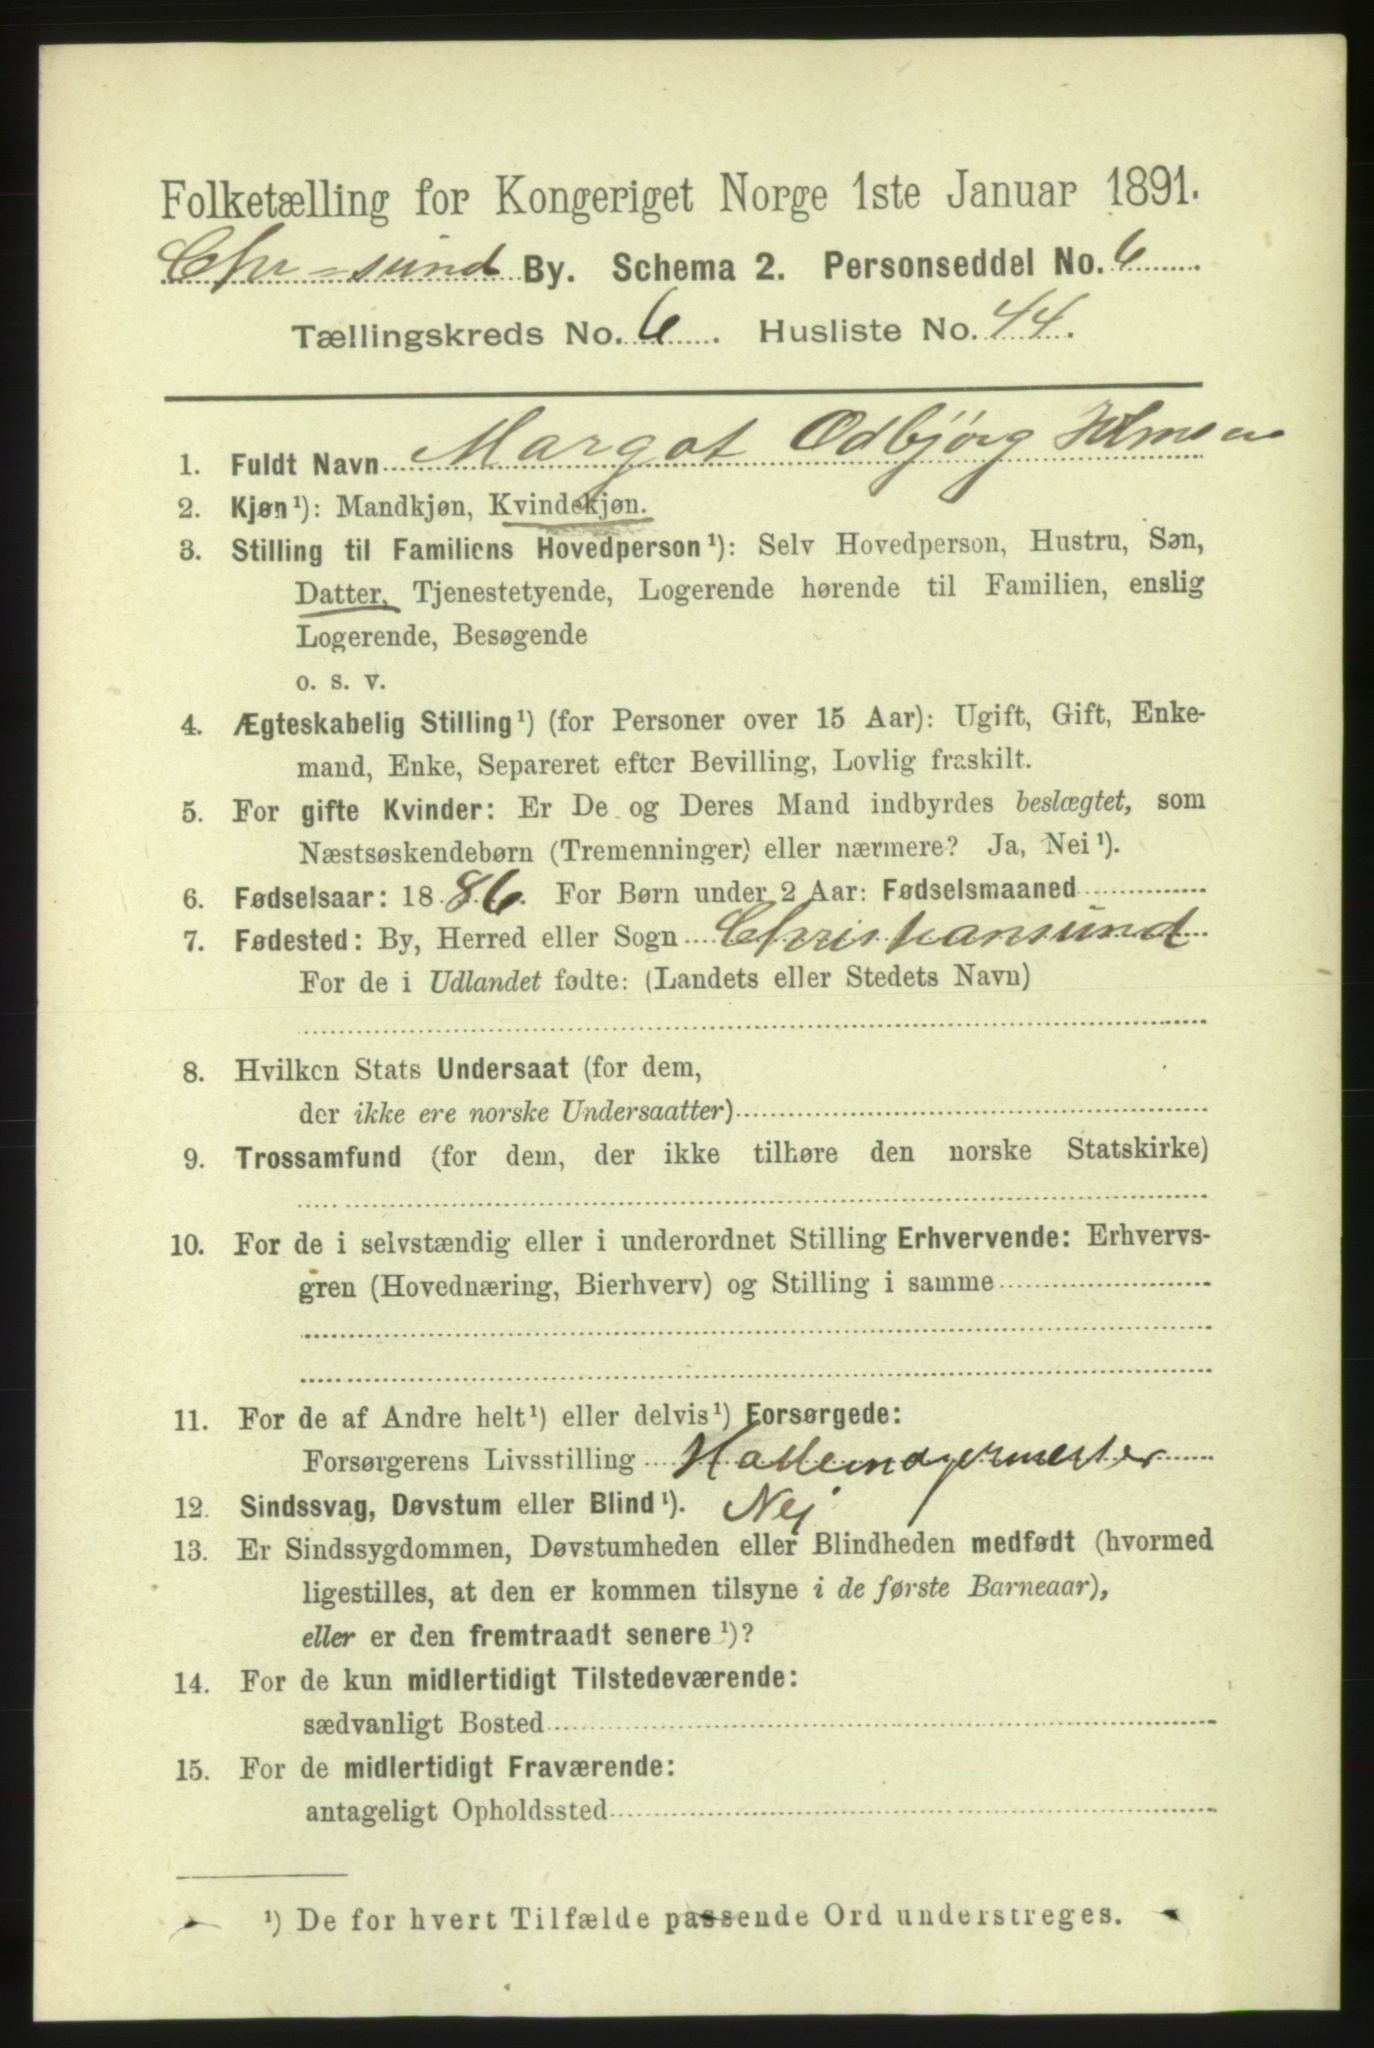 Folketælling for Kongeriget Norge 1ste Januar 1891.
Chr-sund By. Schema 2. Personseddel No. 6
Tællingskreds No. 6. Husliste No. 44.
1. Fuldt Navn Margot Odbjørg
2. Kjøn¹): Mandkjøn, Kvindekjøn.
3. Stilling til Familiens Hovedperson¹): Selv Hovedperson, Hustru, Søn,
Datter, Tjenestetyende, Logerende hørende til Familien, enslig
Logerende, Besøgende
o. s. v.
4. Ægteskabelig Stilling¹) (for Personer over 15 Aar): Ugift, Gift, Enke-
mand, Enke, Separeret efter Bevilling, Lovlig fraskilt.
5. For gifte Kvinder: Er De og Deres Mand indbyrdes beslægtet, som
Næstsøskendebørn (Tremenninger) eller nærmere? Ja, Nei¹).
6. Fødselsaar: 1886. For Børn under 2 Aar: Fødselsmaaned
7. Fødested: By, Herred eller Sogn Christiansund
For de i Udlandet fødte: (Landets eller Stedets Navn)
8. Hvilken Stats Undersaat (for dem,
der ikke ere norske Undersaatter)
9. Trossamfund (for dem, der ikke tilhøre den norske Statskirke)
10. For de i selvstændig eller i underordnet Stilling Erhvervende: Erhvervs-
gren (Hovednæring, Bierhverv) og Stilling i samme
11. For de af Andre helt¹) eller delvis¹) Forsørgede:
Forsørgerens Livsstilling
12. Sindssvag, Døvstum eller Blind¹). Nej
13. Er Sindssygdommen, Døvstumheden eller Blindheden medfødt (hvormed
ligestilles, at den er kommen tilsyne i de første Barneaar),
eller er den fremtraadt senere¹)?
14. For de kun midlertidigt Tilstedeværende:
sædvanligt Bosted
15. For de midlertidigt Fraværende:
antageligt Opholdssted
¹) De for hvert Tilfælde passende Ord understreges.